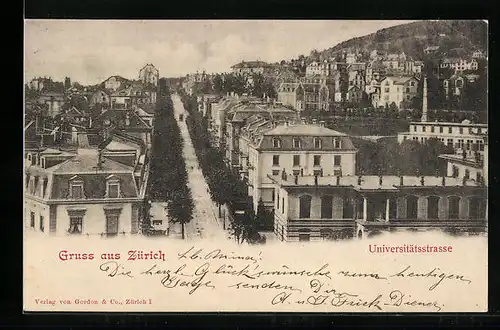 Gruss aus Zürich
Universitätsstrasse
Die herzl. Glückswünsche zum heutigen
Tage, senden Dir
Diener,
Verlag von Gordon & Co., Zürich I